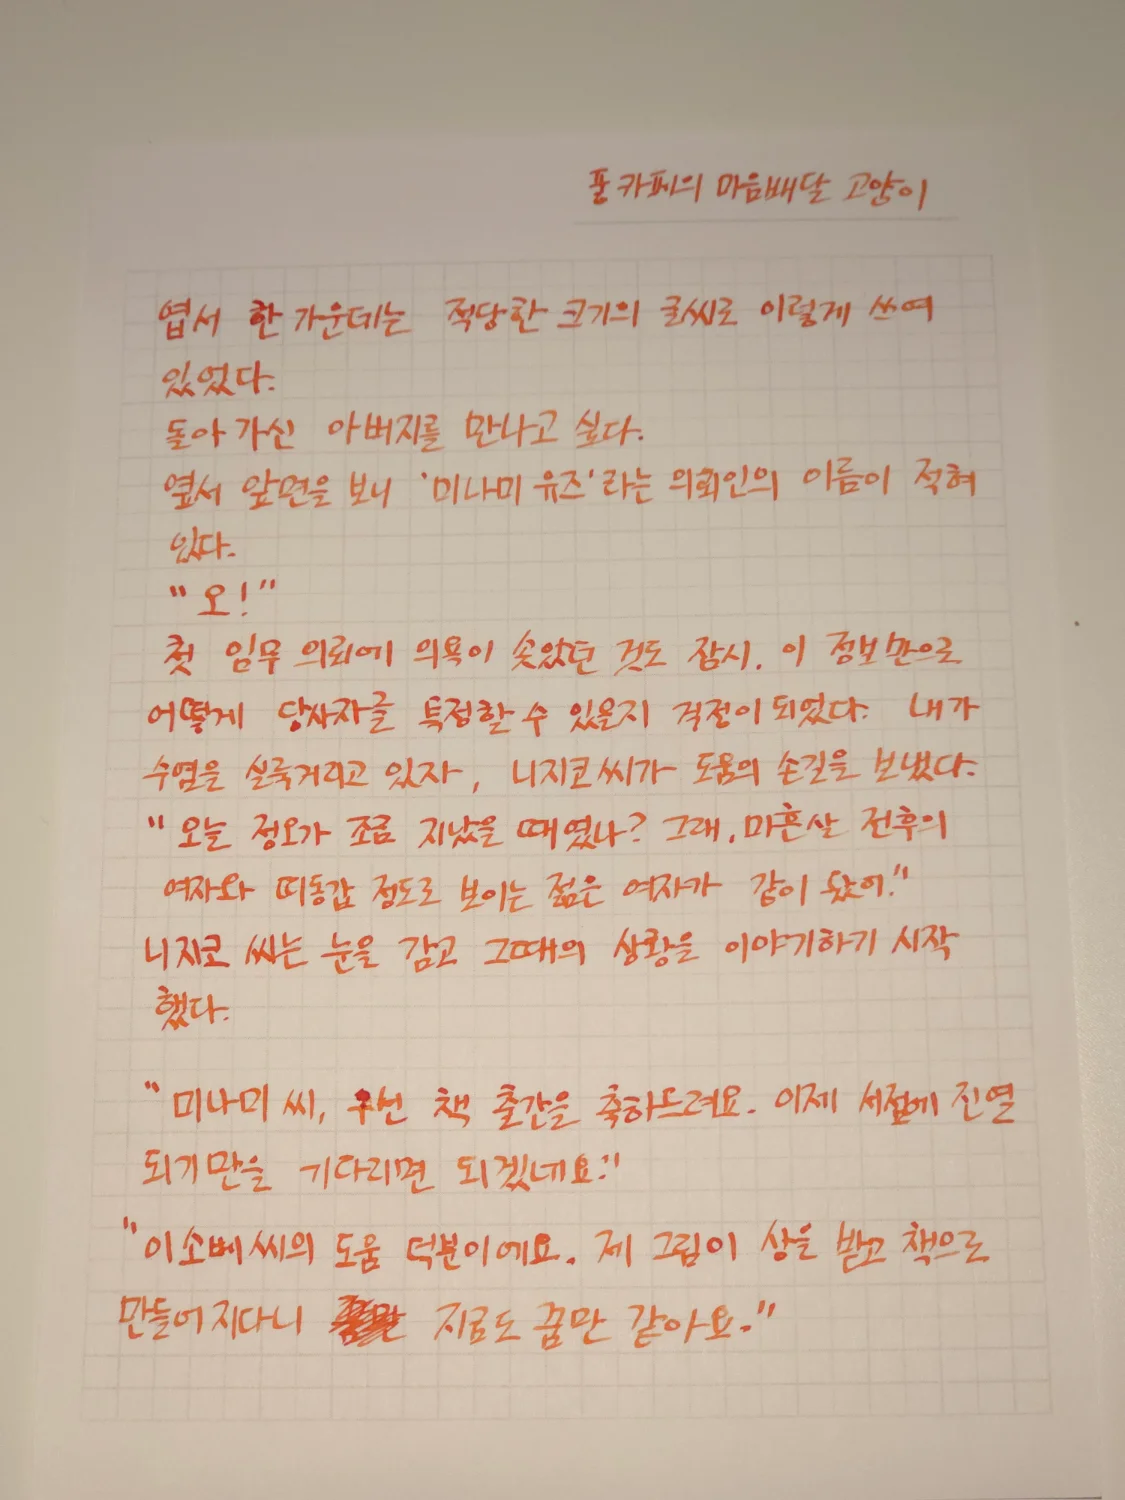 퐁 카페의 마음배달 고양이
엽서 한 가운데는 적당한 크기의 글씨로 이렇게 쓰여
있었다.
돌아 가신 아버지를 만나고 싶다.
엽서 앞면을 보니 '미나미 유즈'라는 의뢰인의 이름이 적혀
있다.
"오!"
첫 임무 의뢰에 의욕이 솟았던 것도 잠시. 이 정보만으로
어떻게 당사자를 특정할 수 있을지 걱정이 되었다. 내가
수염을 실룩거리고 있자, 니지코 씨가 도움의 손길을 보냈다.
"오늘 정오가 조금 지났을 때였나? 그래, 마흔살 전후의
여자와 띠동갑 정도로 보이는 젊은 여자가 같이 왔어."
니지코 씨는 눈을 감고 그때의 상황을 이야기하기 시작
했다.
"미나미 씨, 우선 책 출간을 축하드려요. 이제 서점에 진열
되기만을 기다리면 되겠네요."
"이소베 씨의 도움 덕분이에요. 제 그림이 상을 받고 책으로
만들어지다니 지금도 꿈만 같아요."